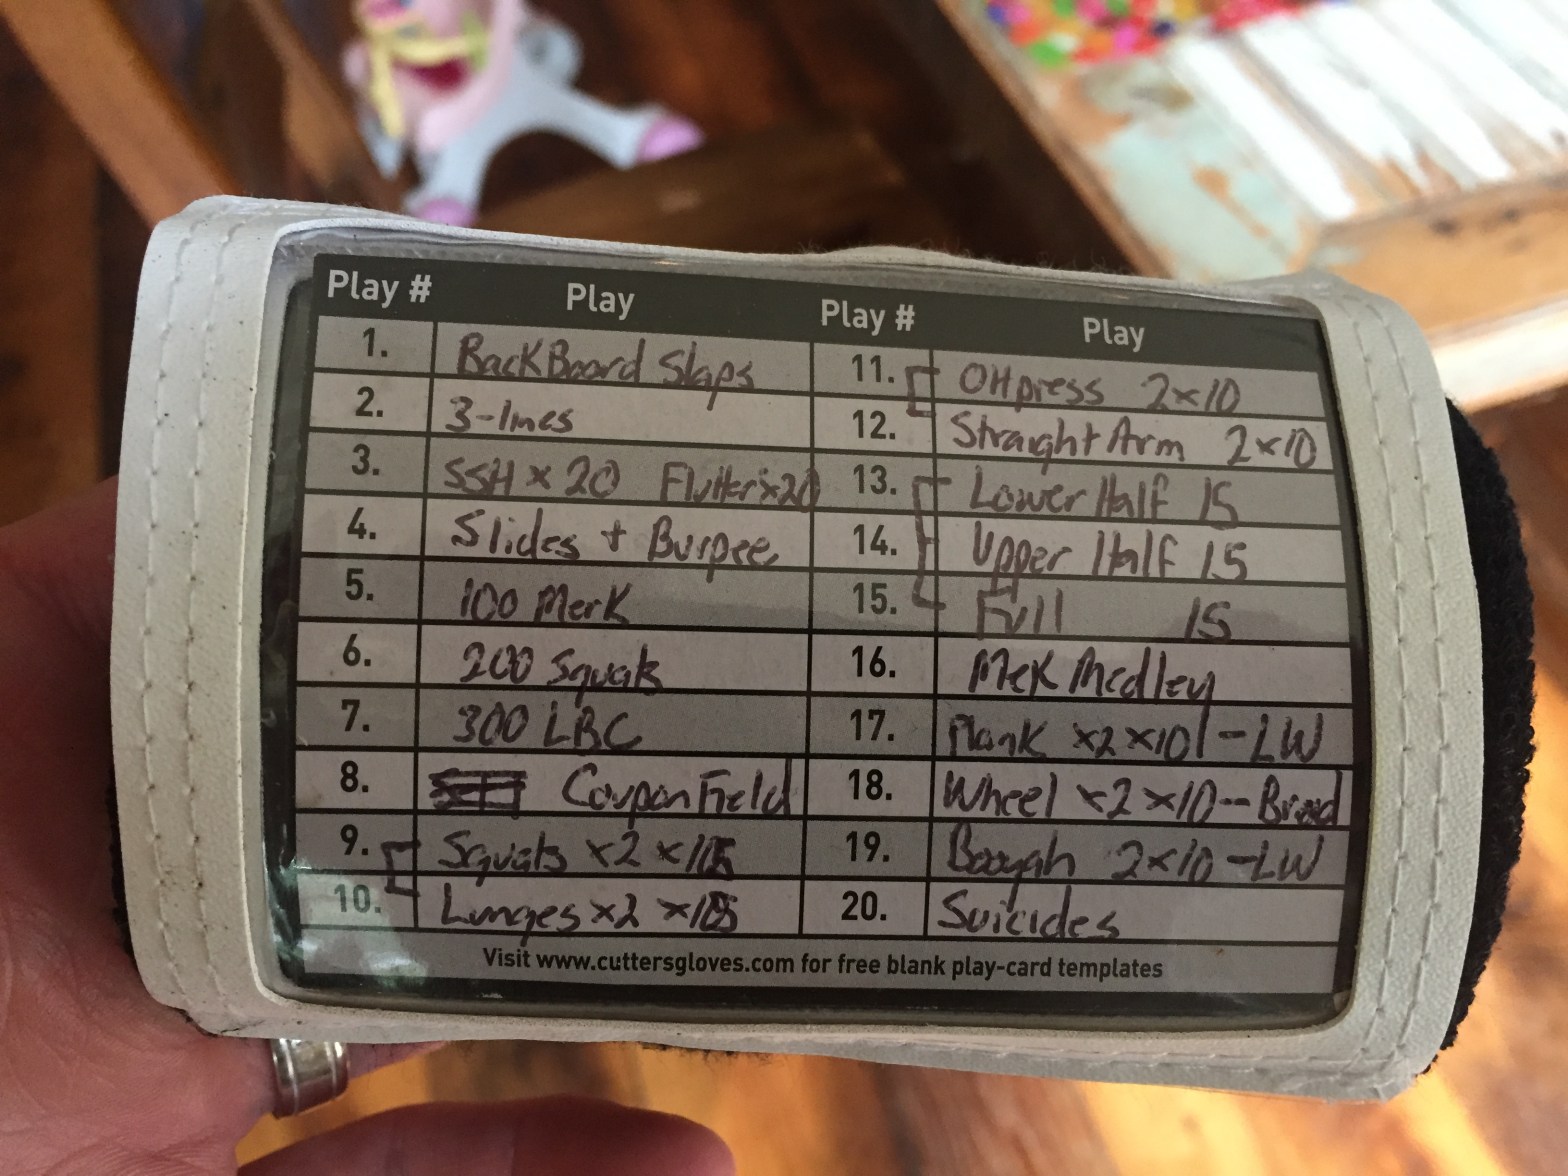 Play # Play Play # Play
1. BackBoard Slaps 11. OH press 2x10
2. 3-lines 12. Straight Arm 2x10
3. SSH x 20 Flutter x20 13. Lower Half 15
4. Slides + Burpee 14. Upper Half 15
5. 100 Merk 15. Full 15
6. 200 Squats 16. Merk Medley
7. 300 LBC 17. Plank x2x10 - LW
8. Coupon Field 18. Wheel x2x10 - Broad
9. Squats x2 x 19. 2x10 - LW
10. Lunges x2 x 20. Suicides
Visit www.cuttersgloves.com for free blank play-card templates